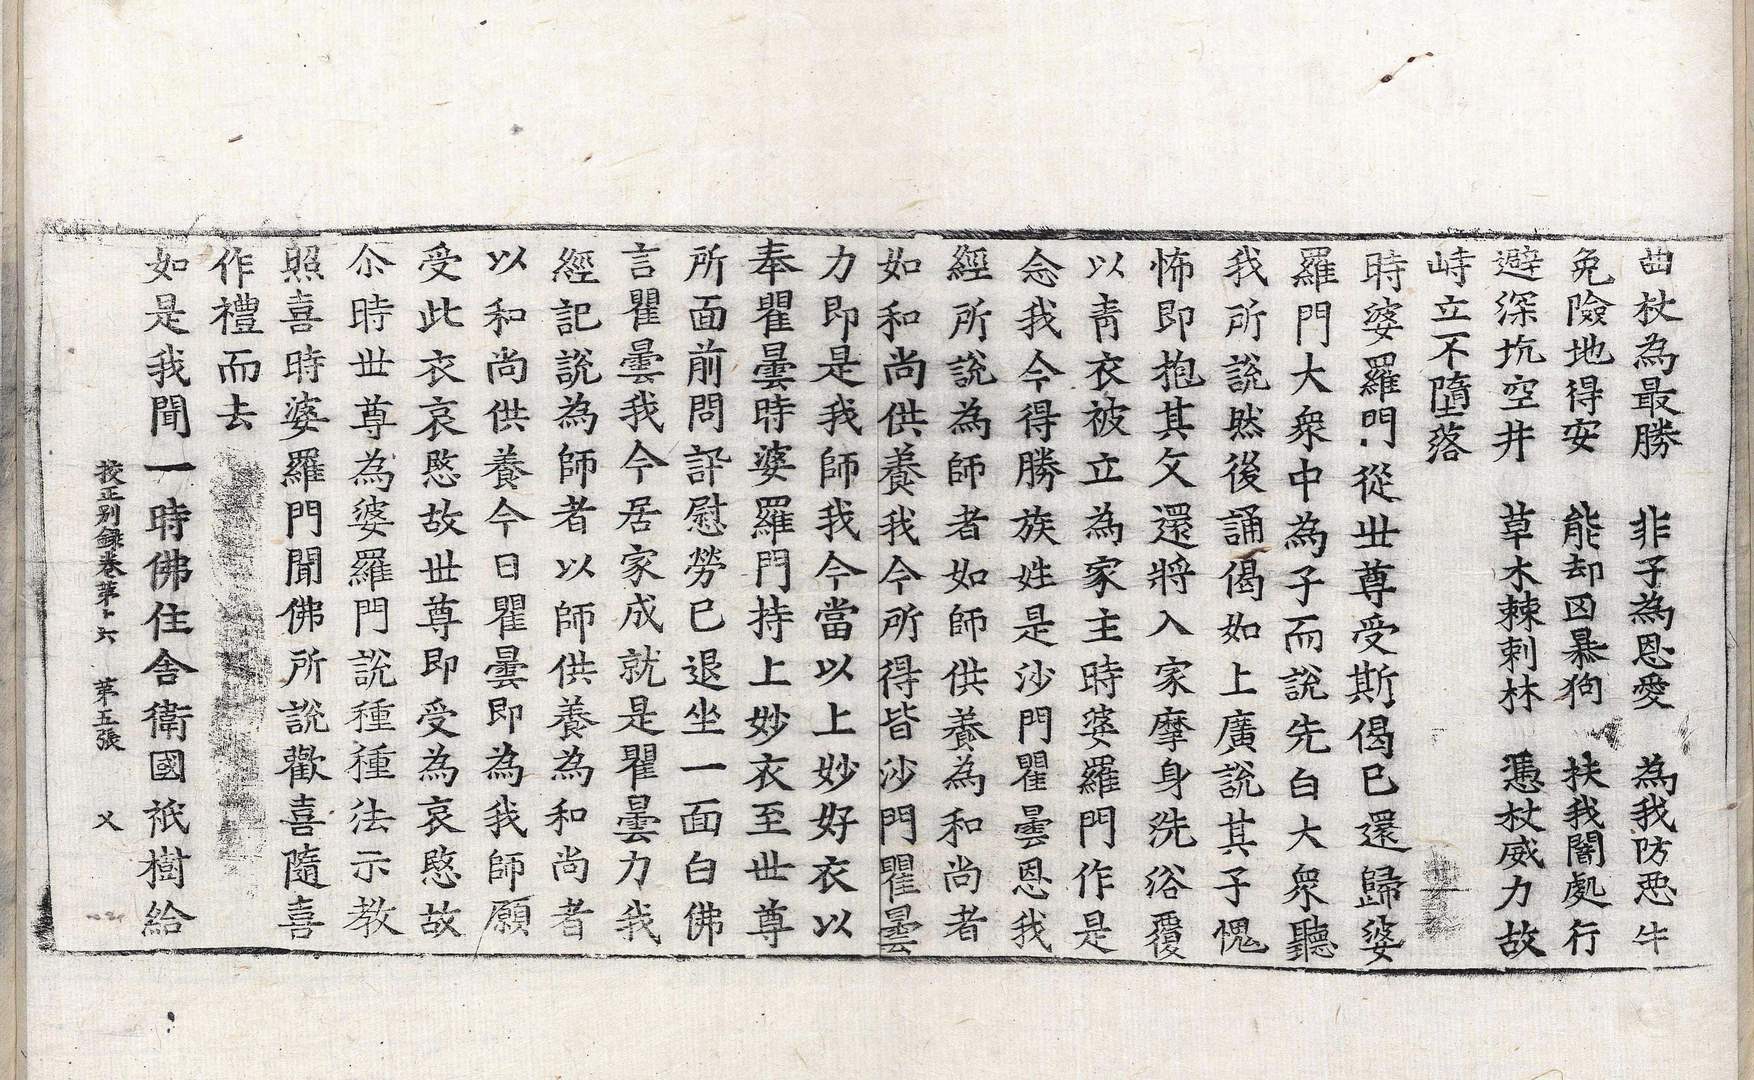 曲杖為最勝　非子為恩愛　為我防惡牛
免險地得安　能却凶暴狗　扶我闇處行
避深坑空井　草木棘刺林　憑杖威力故
峙立不墮落
時婆羅門從世尊受斯偈已還歸婆
羅門大衆中為子而說先白大衆聽
我所說然後誦偈如上廣說其子愧
怖即抱其父還將入家摩身洗浴覆
以青衣被立為家主時婆羅門作是
念我今得勝族姓是沙門瞿曇恩我
經所說為師者如師供養為和尚者
如和尚供養我今所得皆沙門瞿曇
力即是我師我今當以上妙好衣以
奉瞿曇時婆羅門持上妙衣至世尊
所面前問訊慰勞已退坐一面白佛
言瞿曇我今居家成就是瞿曇力我
經記說為師者以師供養為和尚者
以和尚供養今日瞿曇即為我師願
受此衣哀愍故世尊即受為哀愍故
尒時世尊為婆羅門說種種法示教
照喜時婆羅門聞佛所說歡喜隨喜
作禮而去
如是我聞一時佛住舍衛國祇樹給
校正別録卷第十六　第五張　乂